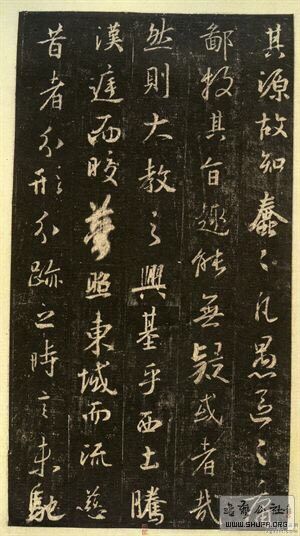 其源故知蠢〻凡愚區〻庸
鄙投其旨趣能無疑或者哉
然則大教之興基乎西土騰
漢庭而皎夢照東域而流慈
昔者分形分跡之時言未馳
WWW.SHUFA.ORG